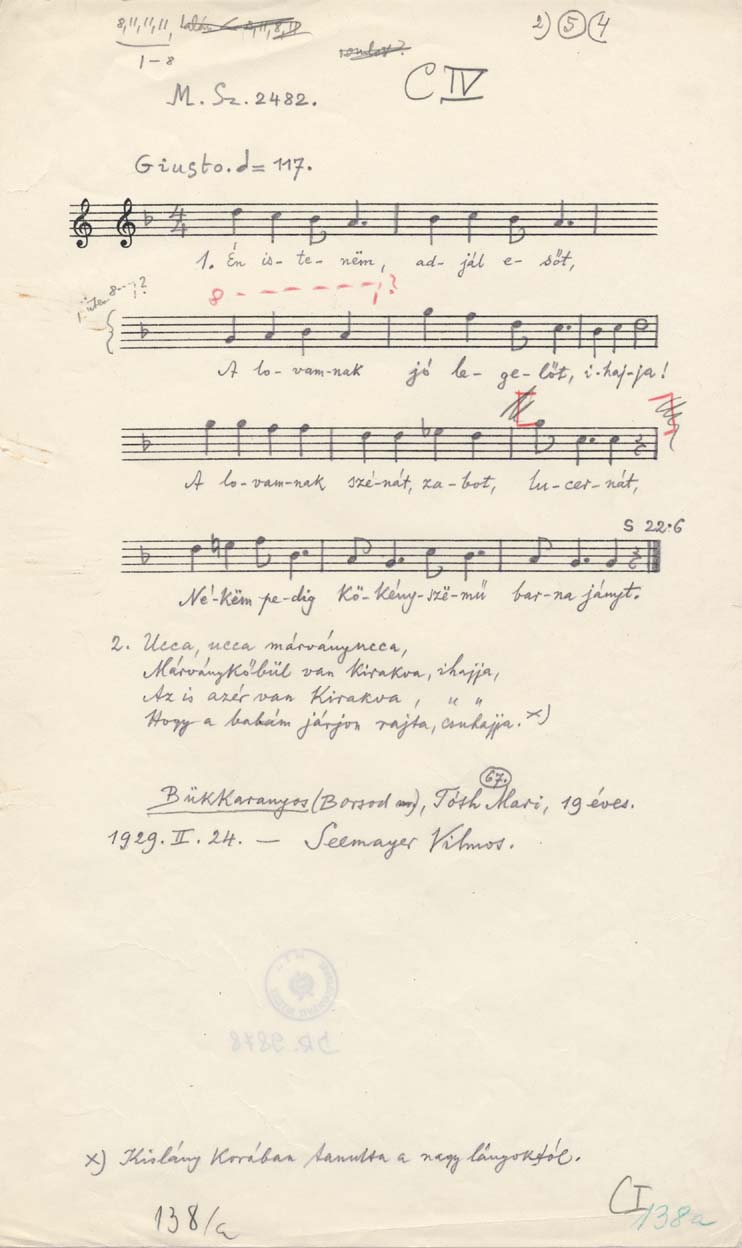 8,11,11,11, talán 8,11,8,11
1-8
2) 5 (4
romlott?
M. Sz. 2482.
C IV
Giusto. d= 117.
4/4
1. Én is-te-nëm, ad-jál e-sőt,
8 - - - - - - ?
A lo-vam-nak jó le-ge-lőt, i-haj-ja!
A lo-vam-nak szé-nát, za-bot, lu-cer-nát,
S 22·6
Né-këm pe-dig kö-kény-szë-mű bar-na jányt.
2. Ucca, ucca márványucca,
Márványkőbül van kirakva, ihajja,
Az is azér van kirakva, " "
Hogy a babám járjon rajta, csuhajja. x)
67.
Bükkaranyos (Borsod m), Tóth Mari, 19 éves.
1929. II. 24. — Seemayer Vilmos.
x) Kislány korában tanulta a nagy lányoktól.
138/a
CI
138a